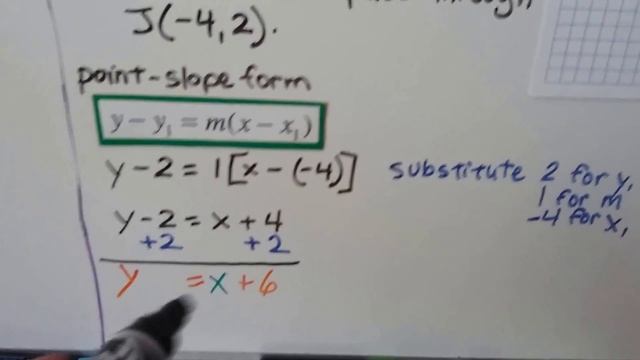 through
J(-4, 2).
point-slope form
y - y₁ = m(x - x₁)
y - 2 = 1[x - (-4)]
substitute 2 for y₁
1 for m
-4 for x₁
y - 2 = x + 4
+2 +2
y = x + 6